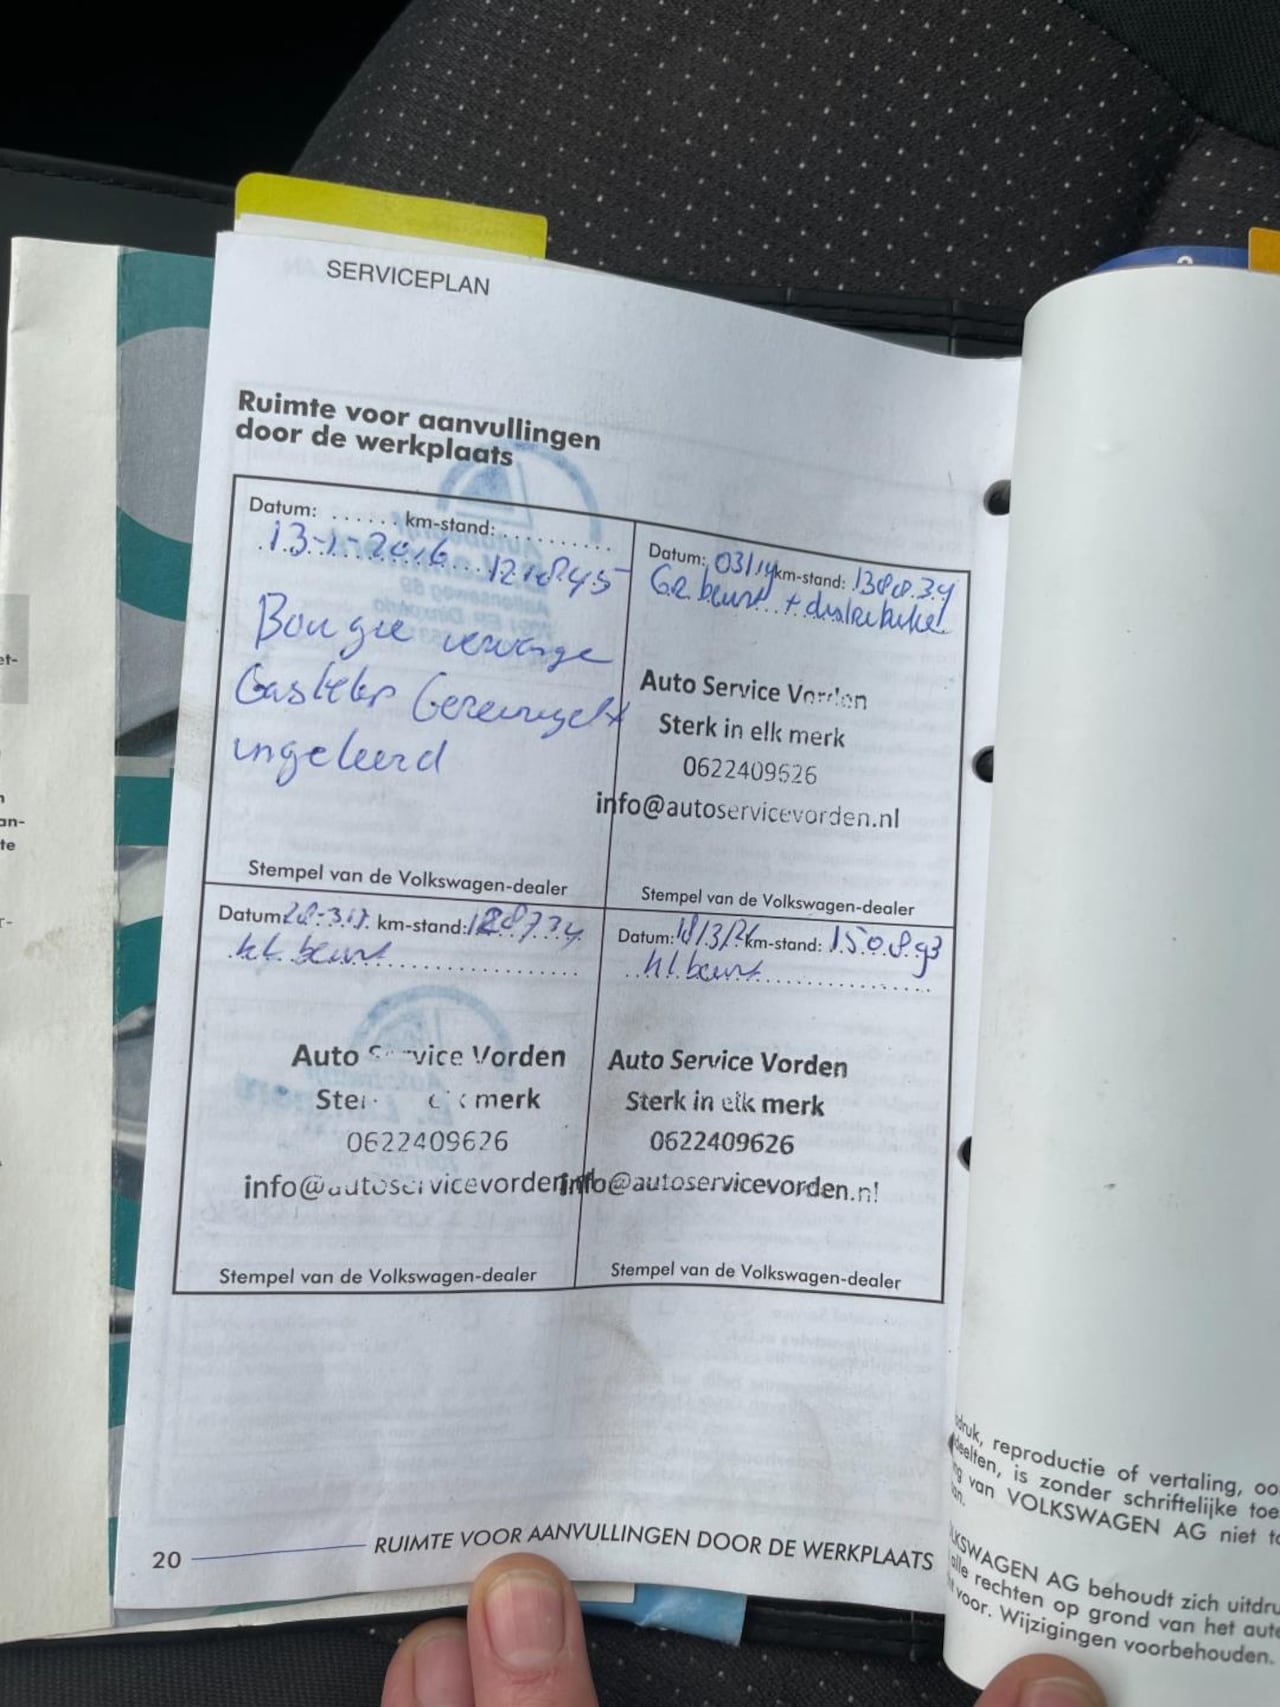 SERVICEPLAN
Ruimte voor aanvullingen
door de werkplaats
Datum: ...... km-stand: ..........
13-1-2016 121845
Bougie vervange
Gasklep Gereinigelt
ingeleerd
Stempel van de Volkswagen-dealer
Datum: 03/19 km-stand: 138834
Gr. beurt + distributie
Auto Service Vorden
Sterk in elk merk
0622409626
info@autoservicevorden.nl
Stempel van de Volkswagen-dealer
Datum: 28-3-17 km-stand: 128734
kl. beurt
Auto Service Vorden
Sterk in elk merk
0622409626
info@autoservicevorden
Stempel van de Volkswagen-dealer
Datum: 18/3/21 km-stand: 150893
kl. beurt
Auto Service Vorden
Sterk in elk merk
0622409626
info@autoservicevorden.nl
Stempel van de Volkswagen-dealer
20 RUIMTE VOOR AANVULLINGEN DOOR DE WERKPLAATS
et-
an-
te
druk, reproductie of vertaling, oo
deelten, is zonder schriftelijke toe
ng van VOLKSWAGEN AG niet to
an.
LKSWAGEN AG behoudt zich uitdru
alle rechten op grond van het aute
t voor. Wijzigingen voorbehouden.